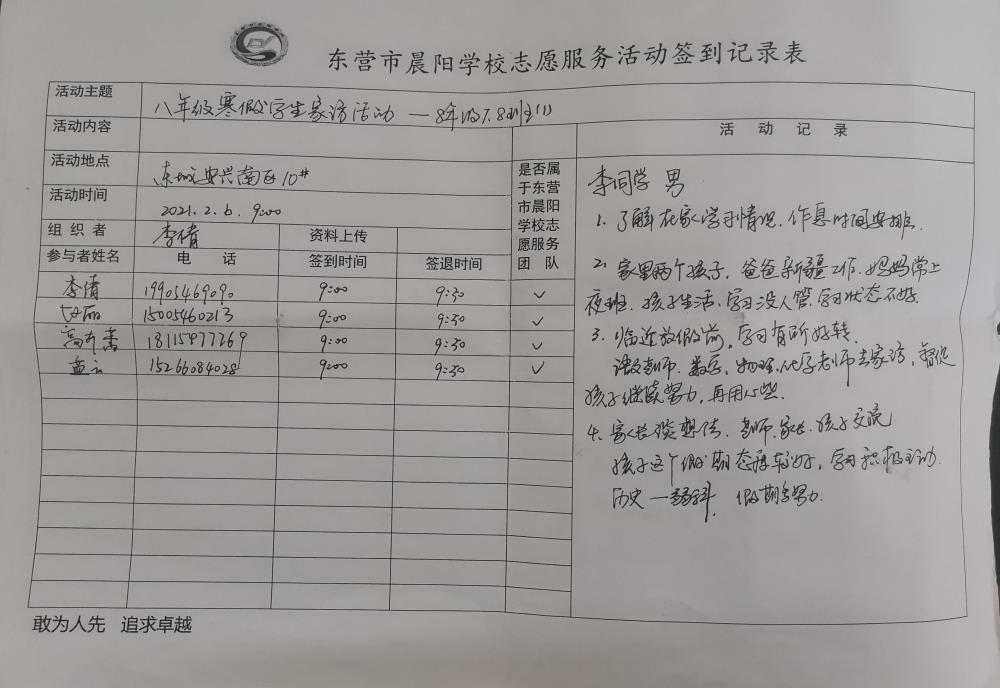 东营市晨阳学校志愿服务活动签到记录表
活动主题 八年级寒假学生家访活动
活动内容
活动地点 东城安兴南区10#
活动时间 2021.2.6. 9:00
组织者 李倩 资料上传
参与者姓名 电话 签到时间 签退时间
是否属
于东营
市晨阳
学校志
愿服务
团队
李倩 19905469090 9:00 9:30 ✓
丽 15005460213 9:00 9:30 ✓
高 18115977269 9:00 9:30 ✓
孟 15266084028 9:00 9:30 ✓
活动记录
李同学 男
1. 了解在家学习情况、作息时间安排.
2. 家里两个孩子、爸爸新疆工作、妈妈常上
夜班、孩子生活、学习没人管、学习状态不好.
3. 临近放假前,学习有所好转.
老师、数学、物理、化学老师去家访,督促
孩子继续努力,再用心些.
4. 家长谈想法、老师、家长、孩子交流
孩子这个假期态度较好,学习积极主动.
历史一弱科,假期多努力.
敢为人先 追求卓越